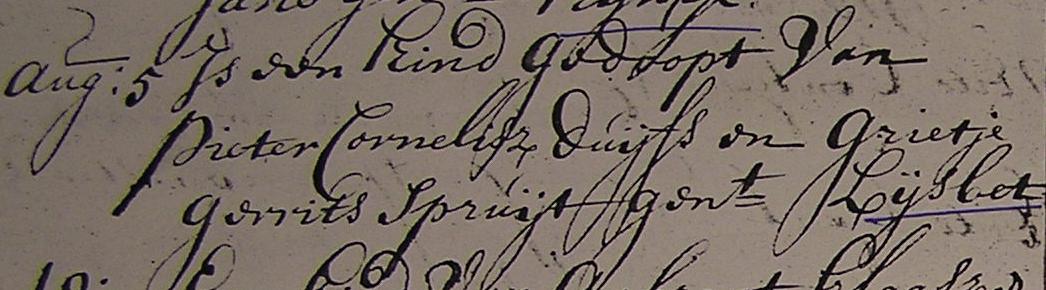 Aug: 5 Is een kind gedoopt Van
Pieter Cornelisz Duijfs en Grietje
Gerrits Spruijt gent Lijsbet